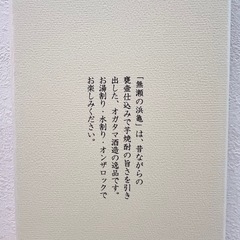 「無瀬の浜亀」は、昔ながらの
甕壷仕込みで芋焼酎の旨さを引き
出した、オガタマ酒造の逸品です。
お湯割り・水割り・オンザロックで
お楽しみください。